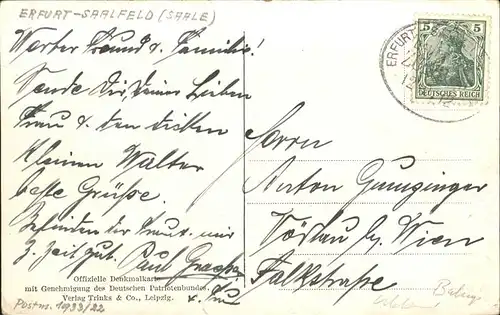 ERFURT-SAALFELD (SAALE)
Werter Freund u. Familie!
Sende Dir, Deiner lieben
Frau u. den dicken
kleinen Walter
beste Grüße.
Befinden der Frau u. mir
z. Zeit gut. Paul
u. Frau
Offizielle Denkmalkarte
mit Genehmigung des Deutschen Patriotenbundes.
Verlag Trinks & Co., Leipzig.
Postnr. 1933/22
ERFURT
5 5
DEUTSCHES REICH
Herrn
Anton Gumginger
Vöslau bei Wien
Falkstraße